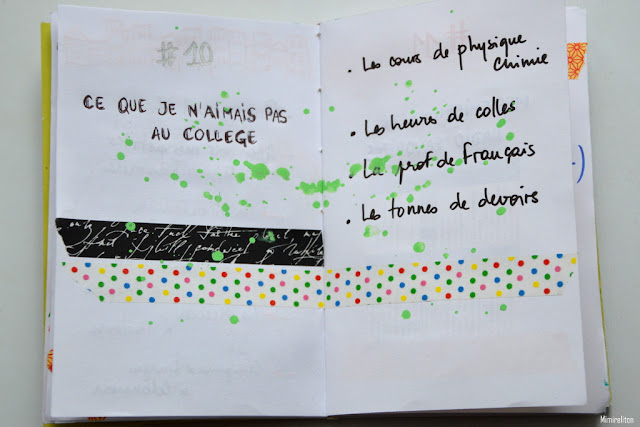 #10
CE QUE JE N'AIMAIS PAS
AU COLLEGE
• Les cours de physique
chimie
• Les heures de colles
• La prof de français
• Les tonnes de devoirs
Mimiraliton